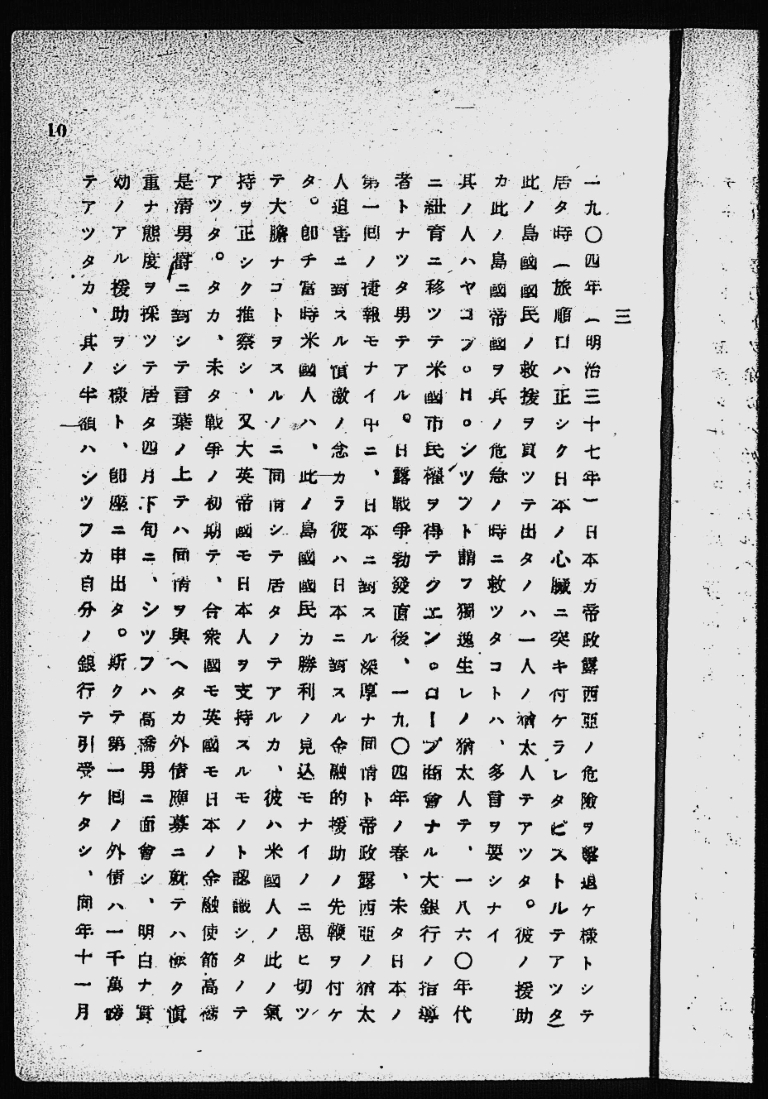 10
三
一九〇四年(明治三十七年)日本カ帝政露西亞ノ危險ヲ擊退ケ樣トシテ
居タ時(旅順口ハ正シク日本ノ心臟ニ突キ付ケラレタピストルテアツタ)
此ノ島國國民ノ救援ヲ買ツテ出タノハ一人ノ猶太人テアツタ。彼ノ援助
カ此ノ島國帝國ヲ其ノ危急ノ時ニ救ツタコトハ、多言ヲ要シナイ
其ノ人ハヤコブ。H。シツフト謂フ獨逸生レノ猶太人テ、一八六〇年代
ニ紐育ニ移ツテ米國市民權ヲ得テクエン。ローブ商會ナル大銀行ノ指導
者トナツタ男テアル。日露戰爭勃發直後、一九〇四年ノ春、未タ日本ノ
第一回ノ捷報モナイ中ニ、日本ニ對スル深厚ナ同情ト帝政露西亞ノ猶太
人迫害ニ對スル憤激ノ念カラ彼ハ日本ニ對スル金融的援助ノ先鞭ヲ付ケ
タ。卽チ當時米國人ハ、此ノ島國國民カ勝利ノ見込モナイノニ思ヒ切ツ
テ大膽ナコトヲスルノニ同情シテ居タノテアルカ、彼ハ米國人ノ此ノ氣
持ヲ正シク推察シ、又大英帝國モ日本人ヲ支持スルモノト認識シタノテ
アツタ。タカ、未タ戰爭ノ初期テ、合衆國モ英國モ日本ノ金融使節高橋
是淸男爵ニ對シテ言葉ノ上テハ同情ヲ與ヘタカ外債應募ニ就テハ極ク愼
重ナ態度ヲ採ツテ居タ四月下旬ニ、シツフハ高橋男ニ面會シ、明白ナ實
効ノアル援助ヲシ樣ト、卽座ニ申出タ。斯クテ第一回ノ外債ハ一千萬磅
テアツタカ、其ノ半額ハシツフカ自分ノ銀行テ引受ケタシ、同年十一月